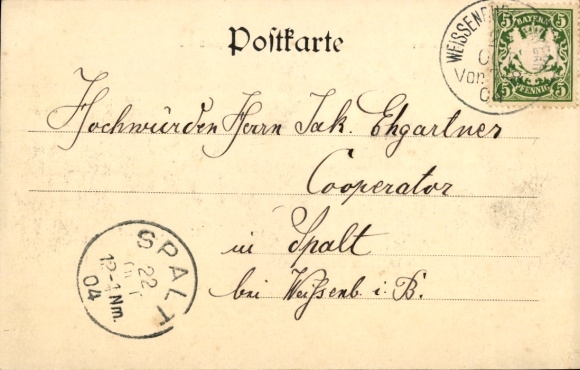 Postkarte
WEISSENBURG
Vor
5 BAYERN 5
5 PFENNIG 5
Hochwürden Herrn Jak. Ehgartner
Cooperator
in Spalt
bei Weissenb. i. B.
SPALT
22
OCT
12-1 Nm.
04